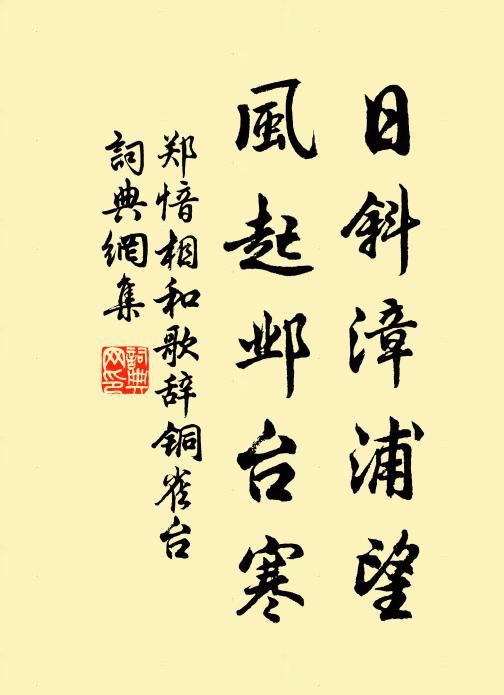 日斜漳浦望
風起邺台寒
郑愔相和歌辞铜雀台
詞典網集
詞典
网印